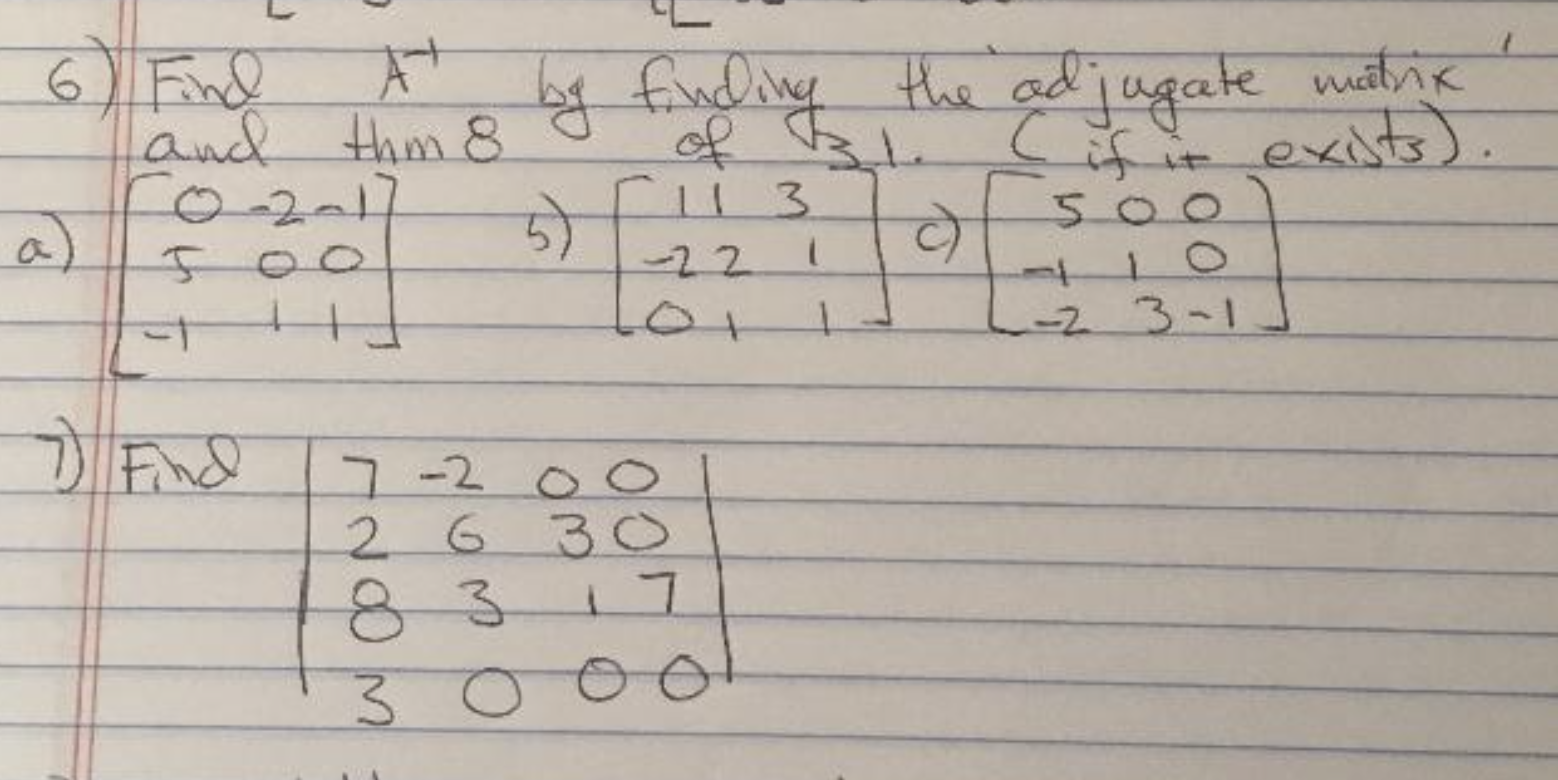 6) Find A⁻¹ by finding the "adjugate matrix"
and thm 8 of 3.1. (if it exists).
a) [0 -2 -1
5 0 0
-1 1 1]
b) [1 1 3
-2 2 1
0 1 1]
c) [5 0 0
-1 1 0
-2 3 -1]
7) Find |7 -2 0 0|
2 6 3 0
8 3 1 7
3 0 0 0